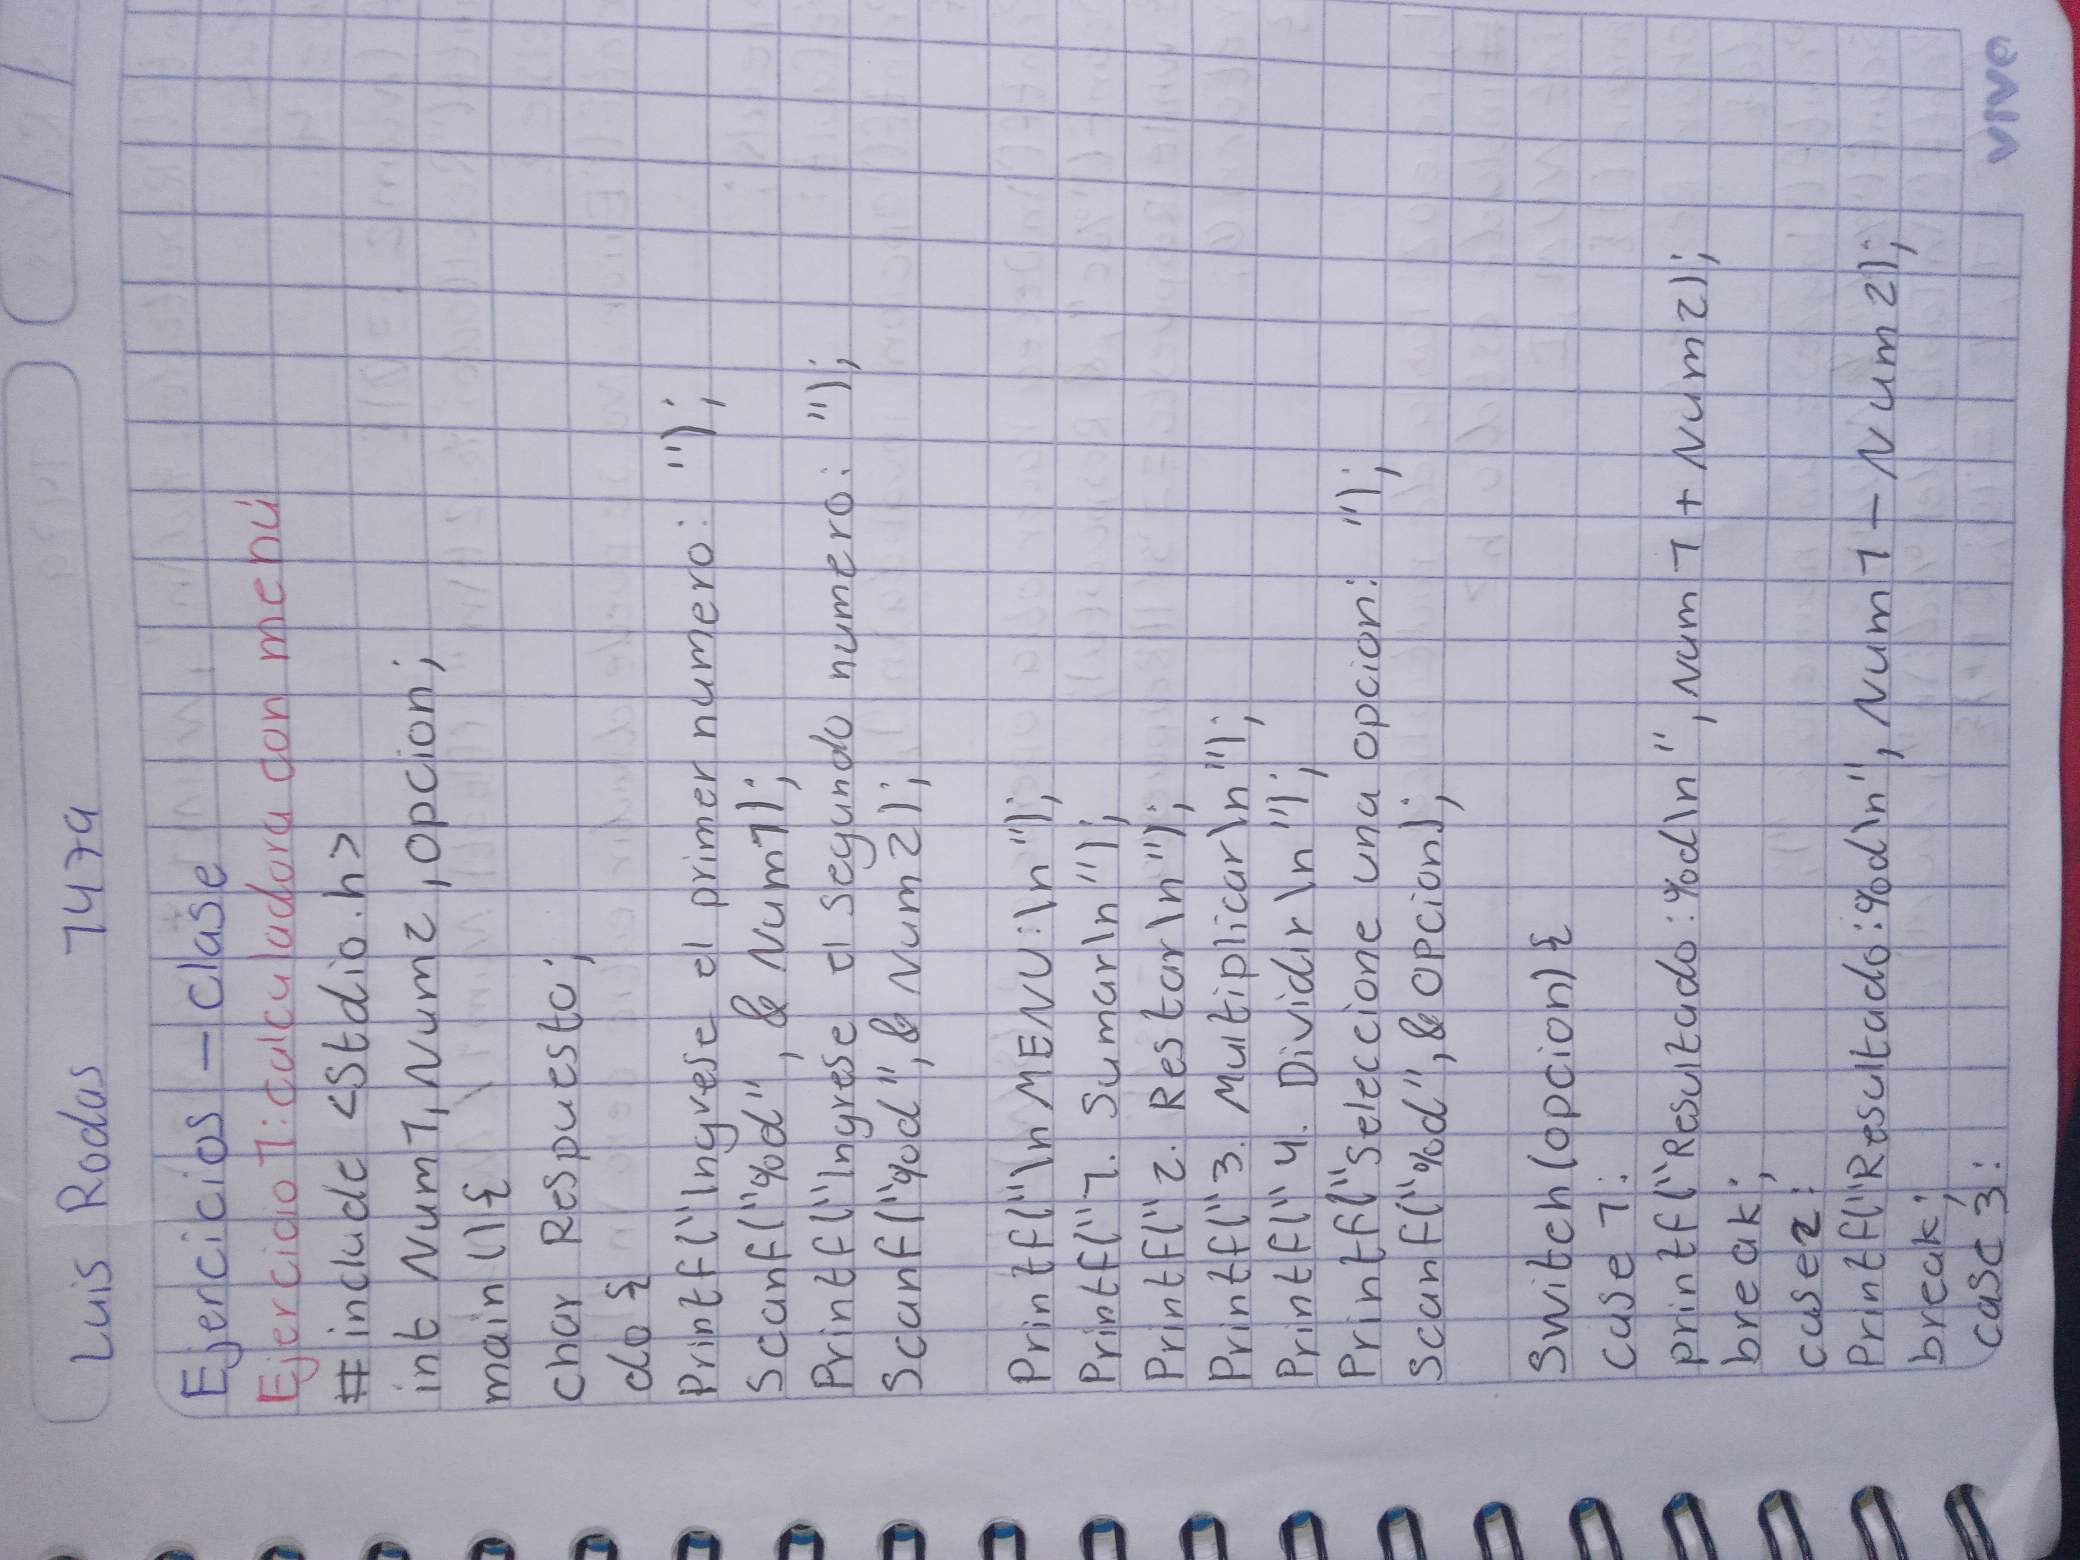 Luis Rodas 7479
Ejercicios - clase
Ejercicio 1: calculadora con menú
#include <Stdio.h>
int Num1, Num2, opcion;
main (){
char Respuesta;
do {
Printf("Ingrese el primer numero: ");
Scanf("%d", & Num1);
Printf("Ingrese el segundo numero: ");
Scanf("%d", & Num2);
Printf("\n MENU:\n");
Printf("1. Sumar\n");
Printf("2. Restar\n");
Printf("3. Multiplicar\n");
Printf("4. Dividir\n");
Printf("Seleccione una opcion: ");
Scanf("%d", & opcion);
Switch (opcion) {
case 1:
printf("Resultado: %d\n", Num1 + Num2);
break;
case 2:
Printf("Resultado: %d\n", Num1 - Num2);
break;
case 3:
viva